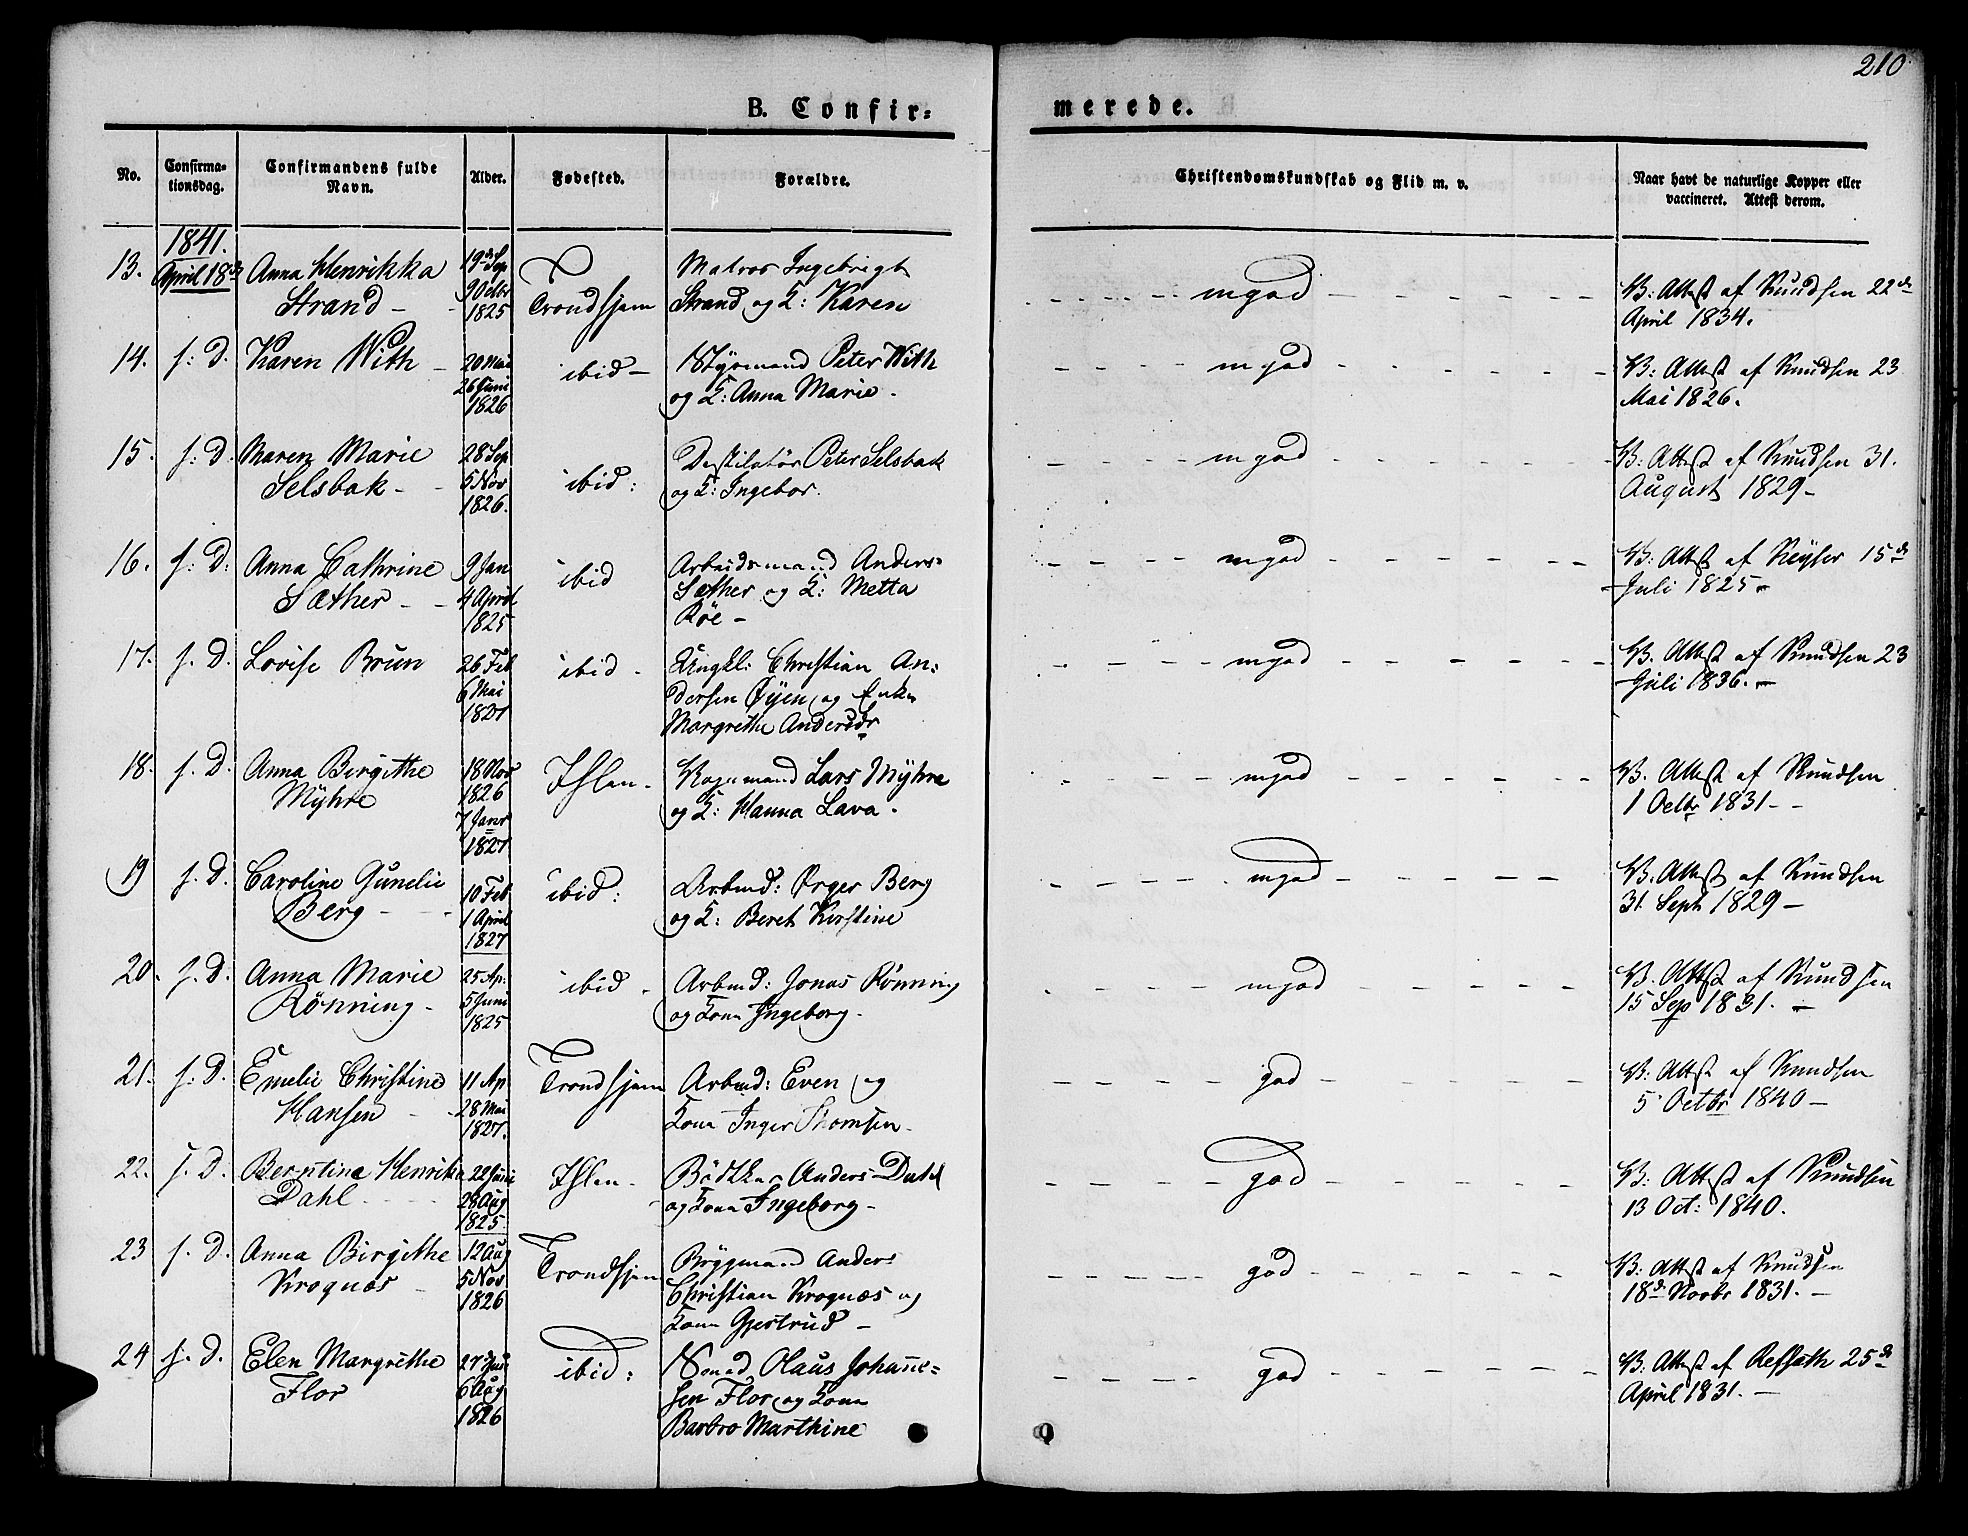 210
B. Confir=
merede.
No.
Confirma=
tionsdag.
Confirmandens fulde
Navn.
Alder.
Fødested.
Forældre.
Christendomskundskab og Flid m. v.
Naar havt de naturlige Kopper eller
vaccineret. Attest derom.
1841.
13. April 18de Anna Henrikka 19de Sep Trondhjem Matros Ingebrigt mgod V: Attest af Knudsen 22de
Strand 9 Octbr 1825 Strand og K: Karen April 1834.
14. s: D. Karen With 20 Mai ibid Styrmand Peter With mgod V: Attest af Knudsen 23
26 Juni 1826 og K: Anna Marie. Mai 1826.
15. s: D. Maren Marie 28 Sep ibid: Destilatör Peter Selsbak mgod V: Attest af Knudsen 31.
Selsbak 5 Nov 1826. og K: Ingebor. August 1829
16. s: D. Anna Cathrine 9 Jan ibid Arbeidsmand Anders mgod V: Attest af Keyser 15de
Sæther 4 April 1825 Sæther og K: Metta Juli 1825
Röe
17. s. D. Lovise Brun 26 Feb ibid Ungkl: Christian An= mgod V. Attest af Knudsen 23
6 Mai 1827 dersen Öyen og Enke Juli 1836.
Margrethe Andersdr
18. s. D. Anna Birgithe 18 Nov Ihlen Vognmand Lars Myhre mgod V. Attest af Knudsen
Myhre 1826 og K: Hanna Lava. 1 Octbr 1831
7 Janr 1827
19 s. D. Caroline Gunelie 10 Feb ibid: Arbmd: Örger Berg mgod V. Attest af Knudsen
Berg 1 April 1827 og K: Beret Kirstine 31. Sept 1829
20. s. D. Anna Marie 25 Ap: ibid Arbmd: Jonas Rönning mgod V. Attest af Knudsen
Rönning 5 Juni 1825 og Kone Ingeborg. 15 Sep 1831.
21. s: D. Emelie Christine 11 Ap Trondhjem Arbmd: Even og god V: Attest af Knudsen
Hansen 28 Mai 1827. Kone Inger Thomsen 5 Octbr 1840
22. s. D. Berntine Henrika 22 Juni Ihlen Bödtker Anders Dahl god V: Attest af Knudsen
Dahl 28 Aug 1825. og Kone Ingeborg 13 Oct: 1840.
23 s. D. Anna Birgithe 12 Aug Trondhjem Bryggmand Anders god V: Attest af Knudsen
Krognæs 5 Nov 1826 Christian Krognæs og 18de Novbr 1831.
Kone Gjertrud
24 s. D. Elen Margrethe ibid: Olaus Johanne= god V: Attest af 25de
Flor 6 Aug 1826 sen Flor og Kone April 1831.
Barbro Marthine